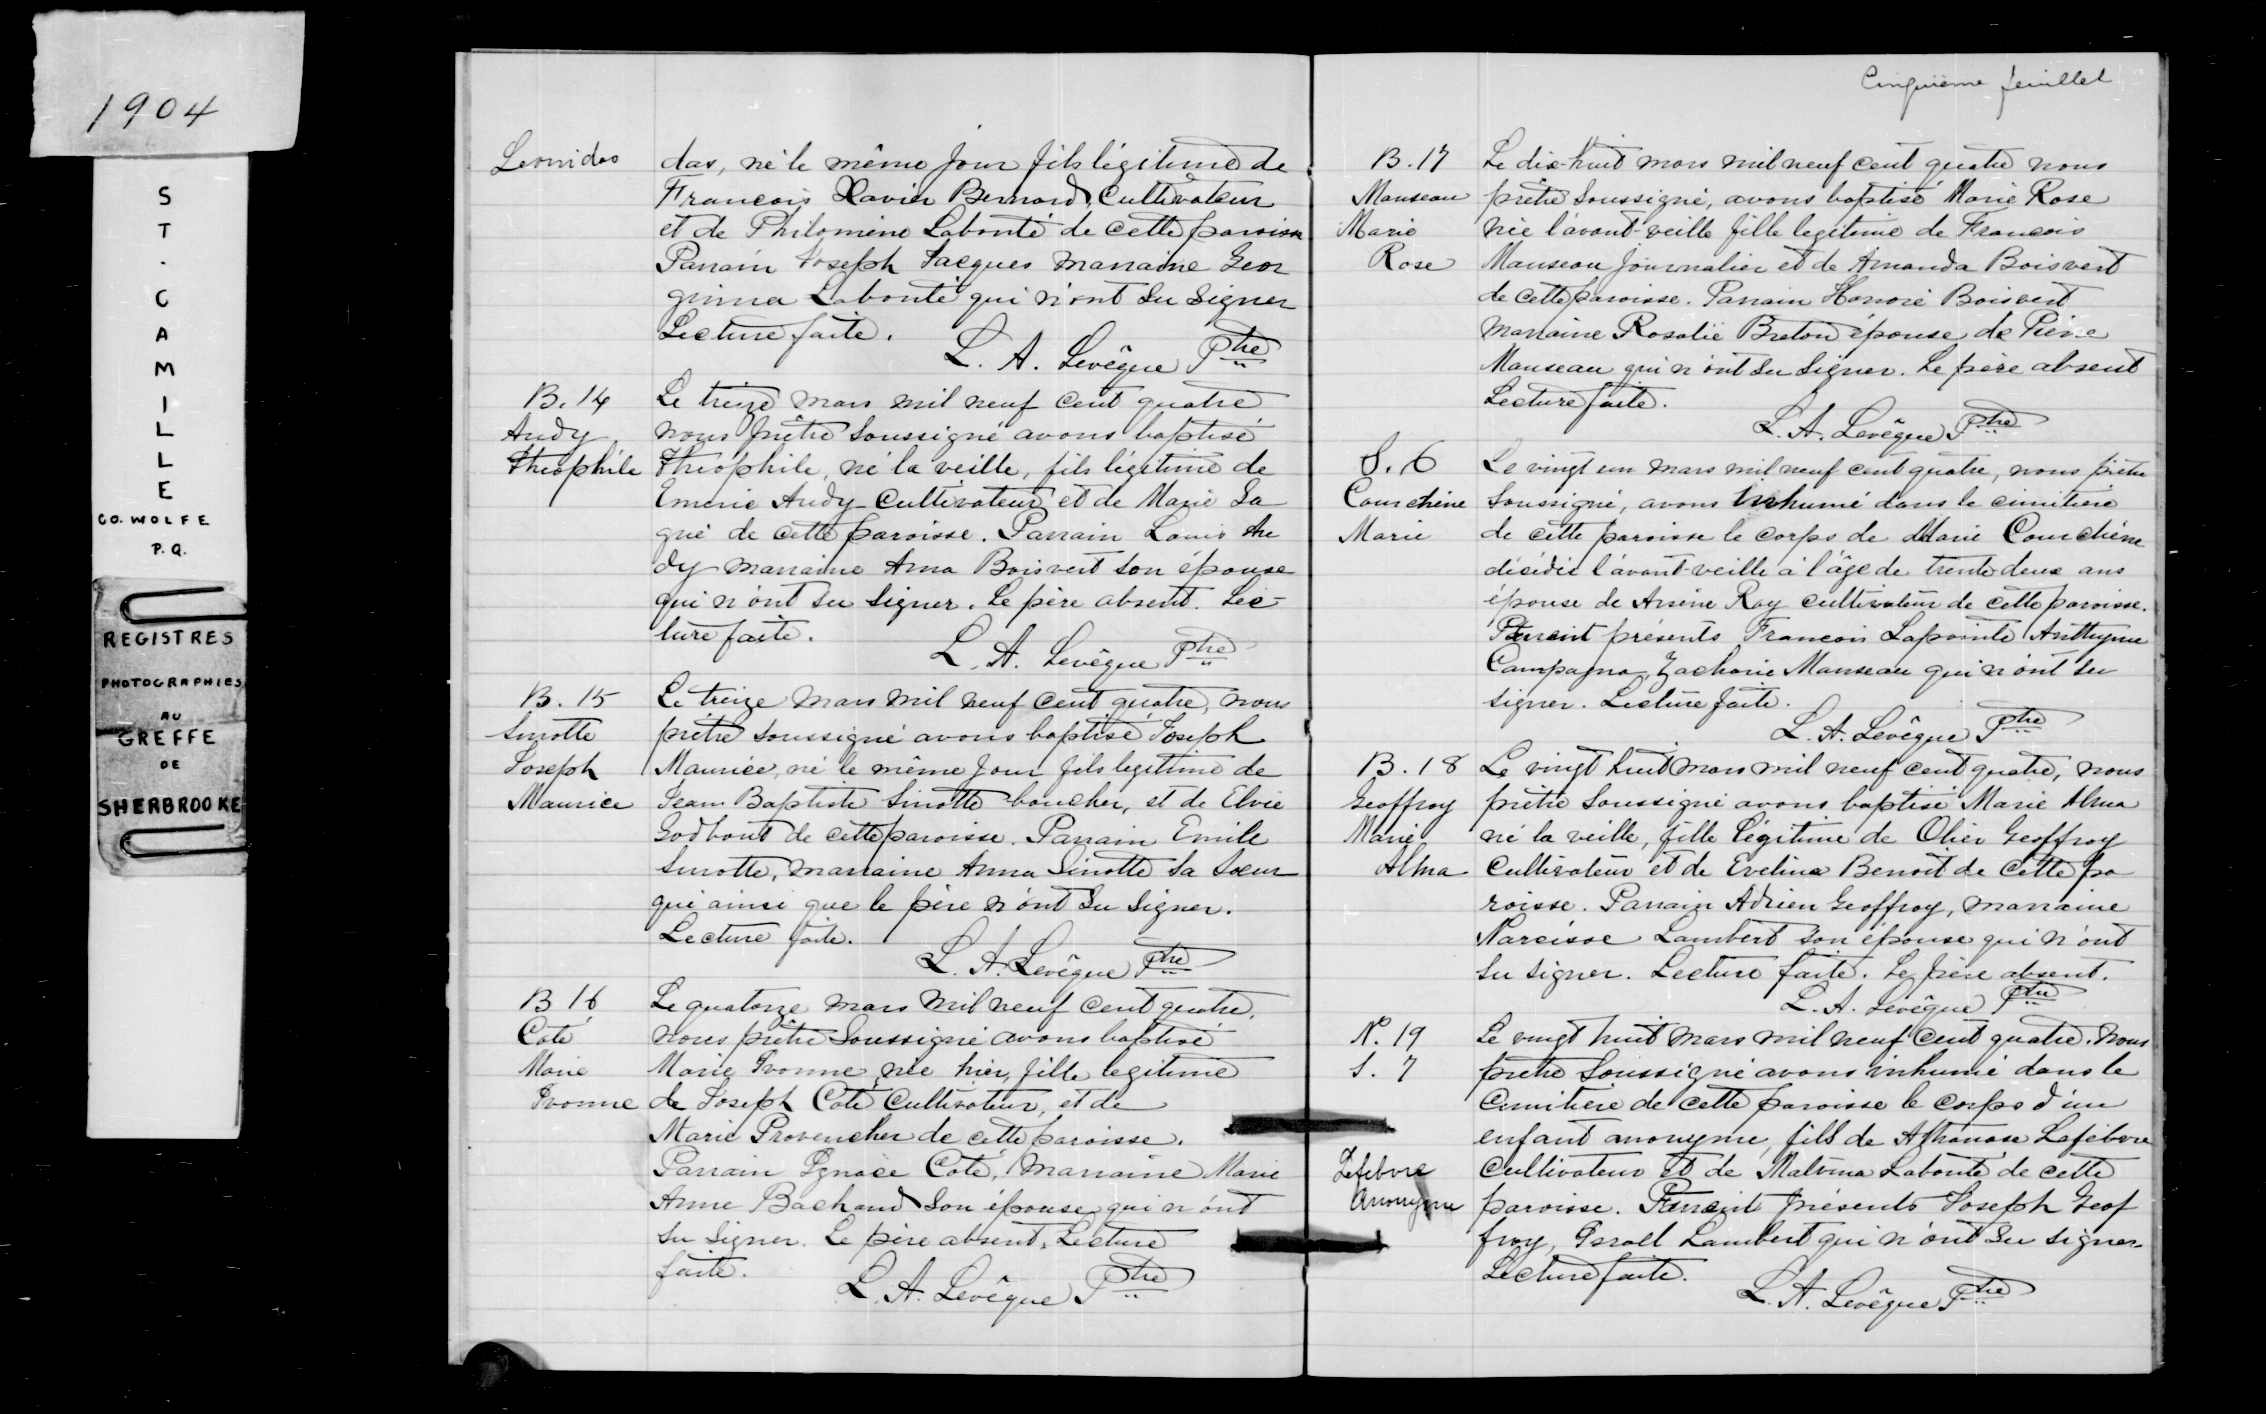 1904
ST. CAMILLE
CO. WOLFE
P.Q.
REGISTRES
PHOTOGRAPHIES
AU
GREFFE
DE
SHERBROOKE
Leonidas
das, né le même jour fils légitime de
Francois Xavier Bernard, Cultivateur
et de Philomène Labonté de cette paroisse
Parrain Joseph Jacques marraine Geor
ginna Labonté qui n'ont su signer
Lecture faite.
L. A. Levêque Ptre
B. 14
Audy
Théophile
Le treize mars mil neuf cent quatre
nous prêtre soussigné avons baptisé
Théophile, né la veille, fils légitime de
Emerie Audy Cultivateur et de Marie La
gué de cette paroisse. Parrain Louis Au
dy marraine Anna Boisvert son épouse
qui n'ont su signer. Le père absent. Lec-
ture faite.
L. A. Levêque Ptre
B. 15
Sinotte
Joseph
Maurice
Le treize mars mil neuf cent quatre, nous
prêtre soussigné avons baptisé Joseph
Maurice, né le même jour fils legitime de
Jean Baptiste Sinotte boucher, et de Elvie
Godbout de cette paroisse. Parrain Emile
Sinotte, marraine Anna Sinotte sa soeur
qui ainsi que le père n'ont su signer.
Lecture faite.
L. A. Levêque Ptre
B 16
Coté
Marie
Yvonne
Le quatorze mars mil neuf cent quatre,
nous prêtre soussigné avons baptisé
Marie Yvonne née hier, fille legitime
de Joseph Coté Cultivateur, et de
Marie Provencher de cette paroisse.
Parrain Ignace Coté, Marraine Marie
Anne Bachand son épouse qui n'ont
su signer. Le père absent, Lecture
faite.
L. A. Levêque Ptre
Cinquième feuillet
B. 17
Manseau
Marie
Rose
Le dix-huit mars mil neuf cent quatre nous
prêtre soussigné, avons baptisé Marie Rose
née l'avant-veille fille legitime de Francois
Manseau journalier et de Amanda Boisvert
de cette paroisse. Parrain Honoré Boisvert
marraine Rosalie Breton épouse de Pierre
Manseau qui n'ont su signer. Le père absent
Lecture faite.
L. A. Levêque Ptre
S. 6
Courchène
Marie
Le vingt un mars mil neuf cent quatre, nous prêtre
soussigné, avons inhumé dans le cimitière
de cette paroisse le corps de Marie Courchène
décédée l'avant-veille à l'âge de trente deux ans
épouse de Arsène Roy cultivateur de cette paroisse.
Furent présents Francois Lapointe
Campagna, Zacharie Manseau qui n'ont su
signer. Lecture faite.
L. A. Levêque Ptre
B. 18
Geoffroy
Marie
Alma
Le vingt huit mars mil neuf cent quatre, nous
prêtre soussigné avons baptisé Marie Alma
né la veille, fille légitime de Olier Geoffroy
Cultivateur et de Evelina Benoit de cette pa
roisse. Parrain Adrien Geoffroy, marraine
Narcisse Lambert son épouse qui n'ont
su signer. Lecture faite. Le père absent.
L. A. Levêque Ptre
N. 19
S. 7
Lefebvre
Anonyme
Le vingt huit mars mil neuf cent quatre, nous
prêtre soussigné avons inhumé dans le
Cimitière de cette paroisse le corps d'un
enfant anonyme, fils de Athanase Lefebvre
Cultivateur et de Malvina Labonté de cette
paroisse. Furent présents Joseph Geof
froy, Lambert qui n'ont su signer
Lecture faite.
L. A. Levêque Ptre